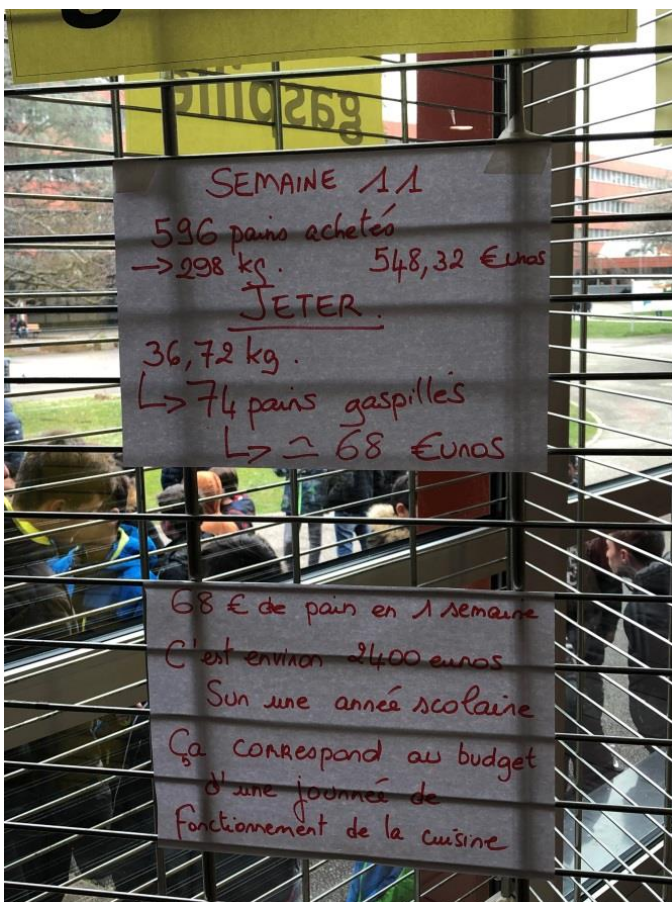 gaspille
SEMAINE 11
596 pains achetés
→ 298 kg. 548,32 €uros
JETER.
36,72 kg.
↳ 74 pains gaspillés
↳ ≃ 68 €uros
68 € de pain en 1 semaine
C'est environ 2400 euros
Sur une année scolaire
Ça correspond au budget
d'une journée de
fonctionnement de la cuisine